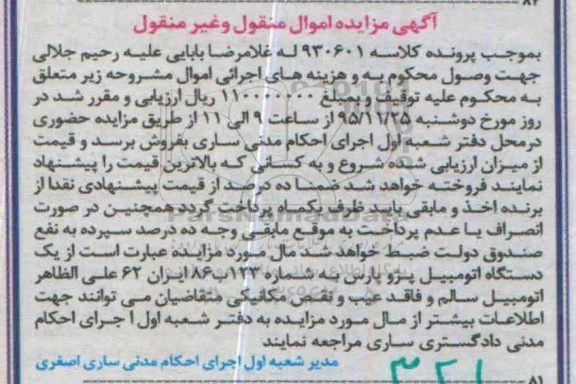 ۸۲
آگهی مزایده اموال منقول وغیر منقول
بموجب پرونده کلاسه ۹۳۰۶۰۱ له غلامرضا بابایی علیه رحیم جلالی
جهت وصول محکوم به و هزینه های اجرائی اموال مشروحه زیر متعلق
به محکوم علیه توقیف و بمبلغ ۱۱۰۰۰۰۰۰۰ ریال ارزیابی و مقرر شد در
روز مورخ دوشنبه ۹۵/۱۱/۲۵ از ساعت ۹ الی ۱۱ از طریق مزایده حضوری
درمحل دفتر شعبه اول اجرای احکام مدنی ساری بفروش برسد و قیمت
از میزان ارزیابی شده شروع و به کسانی که بالاترین قیمت را پیشنهاد
نمایند فروخته خواهد شد ضمنا ده درصد از قیمت پیشنهادی نقدا از
برنده اخذ و مابقی باید ظرف یکماه پرداخت گردد همچنین در صورت
انصراف یا عدم پرداخت به موقع مابقی وجه ده درصد سپرده به نفع
صندوق دولت ضبط خواهد شد مال مورد مزایده عبارت است از یک
دستگاه اتومبیل پژو پارس به شماره ۱۲۳ ایران ۶۲ علی الظاهر
اتومبیل سالم و فاقد عیب و نقص مکانیکی متقاضیان می توانند جهت
اطلاعات بیشتر از مال مورد مزایده به دفتر شعبه اول ا جرای احکام
مدنی دادگستری ساری مراجعه نمایند
مدیر شعبه اول اجرای احکام مدنی ساری اصغری
۸۱